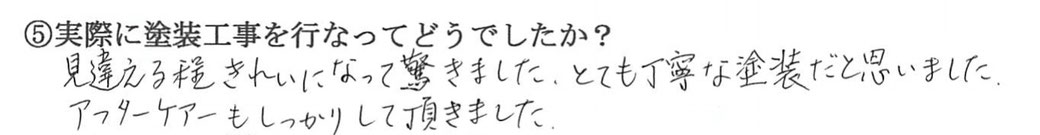 ⑤実際に塗装工事を行なってどうでしたか？
見違える程きれいになって驚きました、とても丁寧な塗装だと思いました.
アフターケアーもしっかりして頂きました.